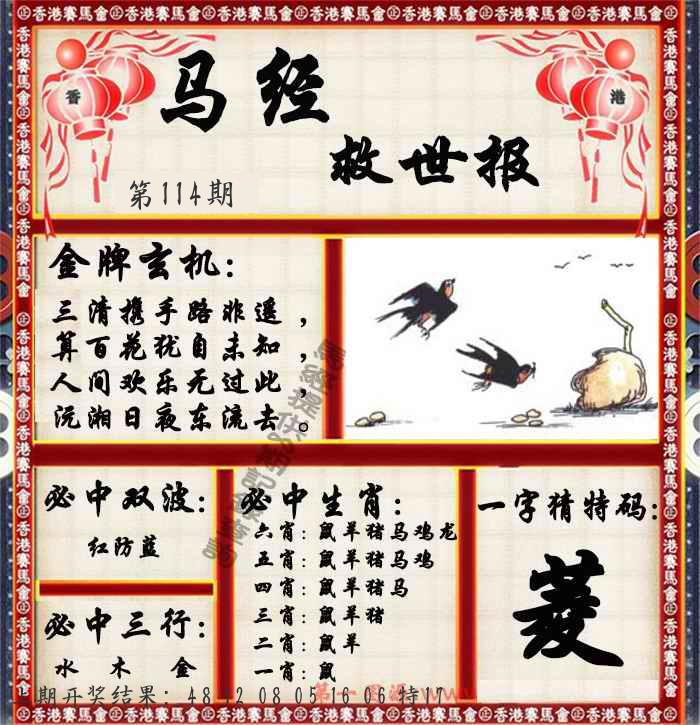 香港賽馬會
香 港
马经
救世报
第114期
金牌玄机:
三清携手路非遥，
算百花犹自未知，
人间欢乐无过此，
沅湘日夜东流去。
必中双波:
红防蓝
必中三行:
水 木 金
必中生肖:
六肖:鼠羊猪马鸡龙
五肖:鼠羊猪马鸡
四肖:鼠羊猪马
三肖:鼠羊猪
二肖:鼠羊
一肖:鼠
一字猜特码:
菱
期开奖结果: 48 12 08 05 16 06 特17
第一图源